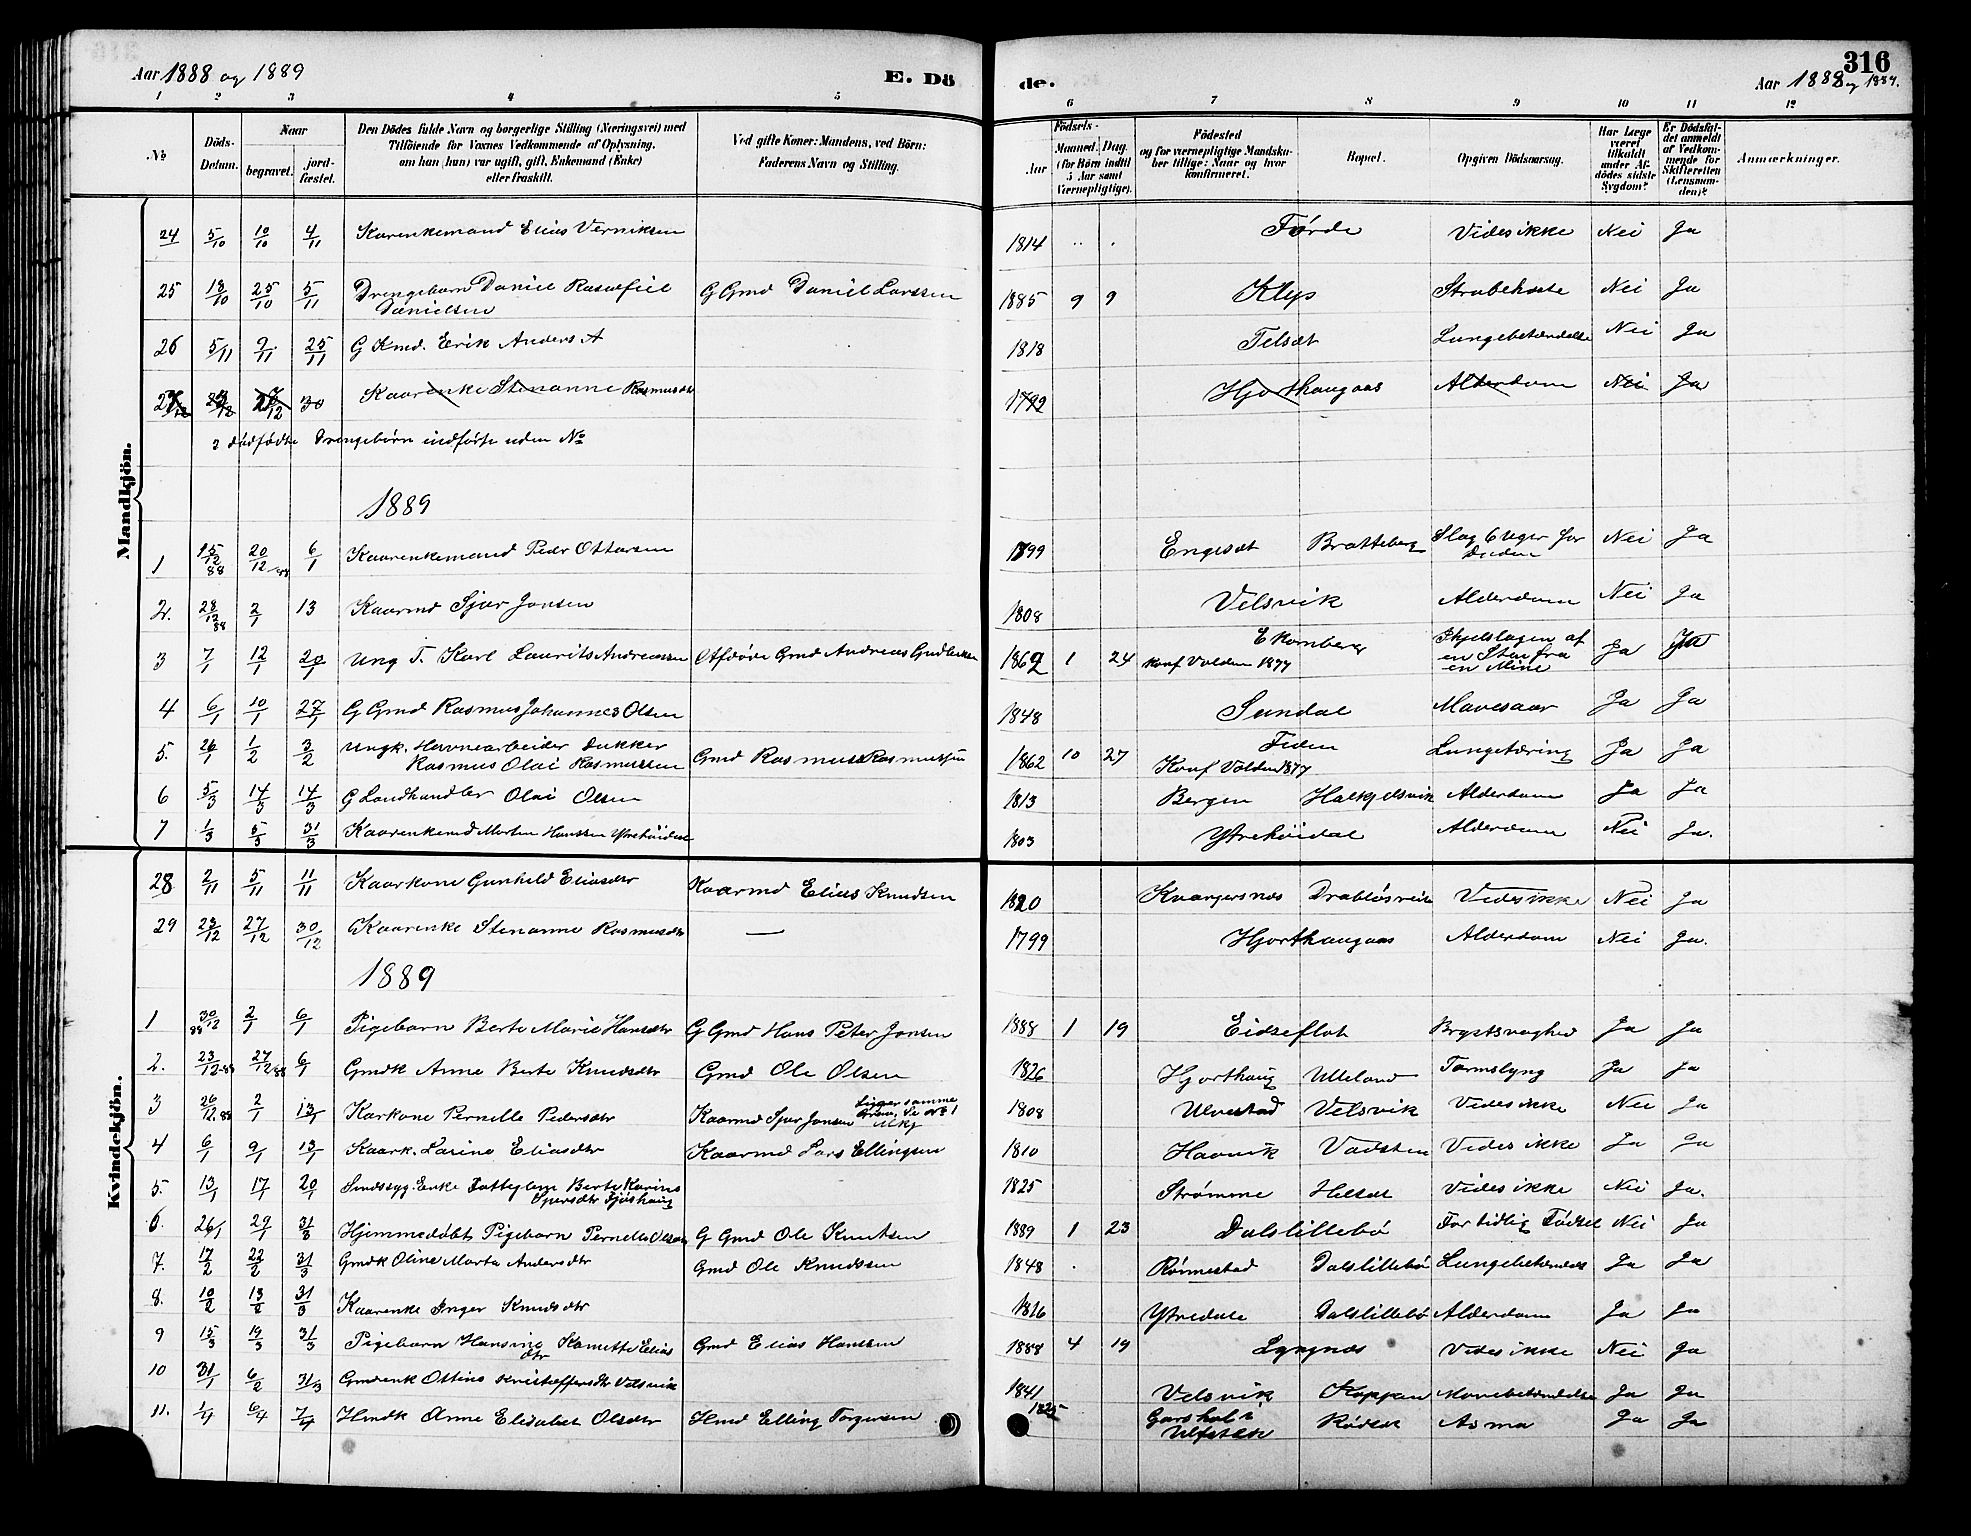 Aar 1888 og 1889 E. Dö de. 316
Aar 1888 og 1889.
1 2 3 4 5 6 7 8 9 10 11 12
No Döds-Datum. Naar begravet. jord-fæstet.
Den Dödes fulde Navn og borgerlige Stilling (Næringsvei) med
Tilföiende for Voxnes Vedkommende af Oplysning,
om han (hun) var ugift, gift, Enkemand (Enke)
eller fraskilt.
Ved gifte Koner: Mandens, ved Börn:
Faderens Navn og Stilling.
Födsels-
Aar Maaned. Dag.
(for Börn indtil
5 Aar samt
Værnepligtige).
Födested
og for værnepligtige Mandska-
ber tillige: Naar og hvor
konfirmeret.
Bopæl.
Opgiven Dödsaarsag.
Har Læge
været
tilkaldt
under Af-
dödes sidste
Sygdom?
Er Dödsfal-
det anmeldt
af Vedkom-
mende for
Skifteretten
(Lensman-
den)?
Anmærkninger.
Mandkjön.
24 5/10 10/10 4/11 Kaarenkemand Elias Verniksen 1814 Förde Vides ikke Nei Ja
25 18/10 25/10 5/11 Drengebarn Daniel Danielsen G Gmd Daniel Larssen 1885 9 9 Klep Strubehoste Nei Ja
26 5/11 9/11 25/11 G Kmd. Erik Anders A 1818 Telsæt Lungebetændelse Nei Ja
Kaarenke Stenanne Rasmusdtr 1792 Hjorthaugaas Alderdom Nei Ja
2 dödfödte Drengebörn indförte uden No
1889
1 15/12 88 20/12 88 6/1 Kaarenkemand Peder Ottarsen 1799 Engeset Bratteberg Slag 6 Uger for Döden Nei Ja
2. 28/12 88 2/1 13 Kaarmd Sjur Jonsen 1808 Velsvik Alderdom Nei Ja
3 7/1 12/1 20/1 Ung T. Karl Laurits Andreassen Afdöde Gmd Andreas 1862 1 24 Ekornberg konf Volden 1877 Ihjelslagen af en Sten fra en Mine Ja
4 6/1 10/1 27/1 G Gmd Rasmus Johannes Olsen 1848 Sundal Mavesaar Ja Ja
5. 26/1 1/2 3/2 Ungk. Havnearbeider Dukker Rasmus Olai Rasmussen Gmd Rasmus Rasmussen 1862 10 27 Konf Volden 1877 Lungetæring Ja Ja
6 5/3 14/3 14/3 G Landhandler Olai Olsen 1813 Bergen Halkjelsvik Alderdom Ja Ja
7 1/3 5/3 31/3 Kaarenkemd Morten Hanssen Ytrehöidal 1803 Ytrehöidal Alderdom Nei Ja.
Kvindekjön.
28 2/11 5/11 11/11 Kaarkone Gunhild Eliasdtr Kaarmd Elias Knudsen 1820 Kvangersnes Drablösvik Vides ikke Nei Ja
29 23/12 27/12 30/12 Kaarenke Stenanne Rasmusdtr — 1799 Hjorthaugaas Alderdom Nei Ja.
1889
1 30/12 88 2/1 6/1 Pigebarn Berte Marie Hansdtr G Gmd Hans Peter Jonsen 1888 1 19 Eidseflot Brystsvaghed Ja Ja
2. 23/12 88 27/12 88 6/1 Gmdk Anne Berte Knudsdtr Gmd Ole Olsen 1826 Hjorthaug Ulleland Tarmslyng Ja Ja
3 26/12 88 2/1 13/1 Karkone Pernille Pedersdtr Kaarmd Sjur Jonsen Ligger samme Grav, Se No 1 Mkj 1808 Ulvestad Velsvik Vides ikke Nei Ja
4 6/1 9/1 13/1 Kaark. Larine Eliasdtr Kaarmd Lars Ellingsen 1810 Haavik Vadsten Vides ikke Ja Ja
5. 13/1 17/1 20/1 Sindssyg. Enke Fattiglem Berte Karine Sjursdtr 1825 Strömme Helset Vides ikke Nei Ja.
6. 26/1 29/1 31/3 Hjemmedöbt Pigebarn Pernille Olsdtr G Gmd Ole Knutsen 1889 1 23 Dalslillebö For tidlig Födsel Nei Ja
7. 17/2 22/2 31/3 Gmdk Oline Marta Andersdtr Gmd Ole Knudssen 1848 Rönnestad Dalslillebö Lungebetændels Ja Ja
8. 10/2 13/2 31/3 Kaarenke Inger Knudsdtr 1816 Ytredale Dalslillebö Alderdom Ja Ja
9 15/3 19/3 31/3 Pigebarn Hansine Elias dtr Gmd Elias Hanssen 1888 4 19 Lyngnes Vides ikke Nei Ja
10 31/1 6/2 31/3 Gmdenk Ottine Kristoffersdtr Velsvik 1841 Velsvik Koppen Mavebetændelse Ja Ja
11. 1/4 6/4 7/4 Hmdk Anne Elisabet Olsdtr Hmd Elling Torgersen 1825 Garshol i Ulfsten Rödsæt Asma Ja Ja